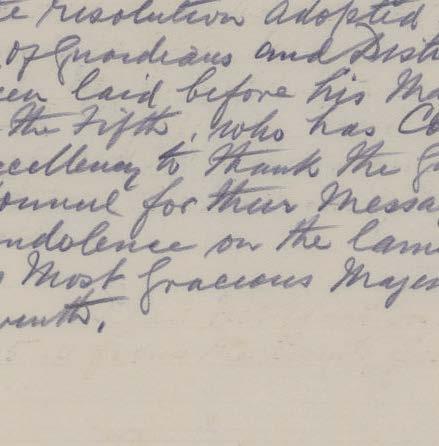 e resolution adopted
of Guardians and Dist
een laid before his Ma
the Fifth, who has Co
cellency to thank the Gu
ouncil for their Messa
ndolence on the lam
s Most Gracious Majes
venth.